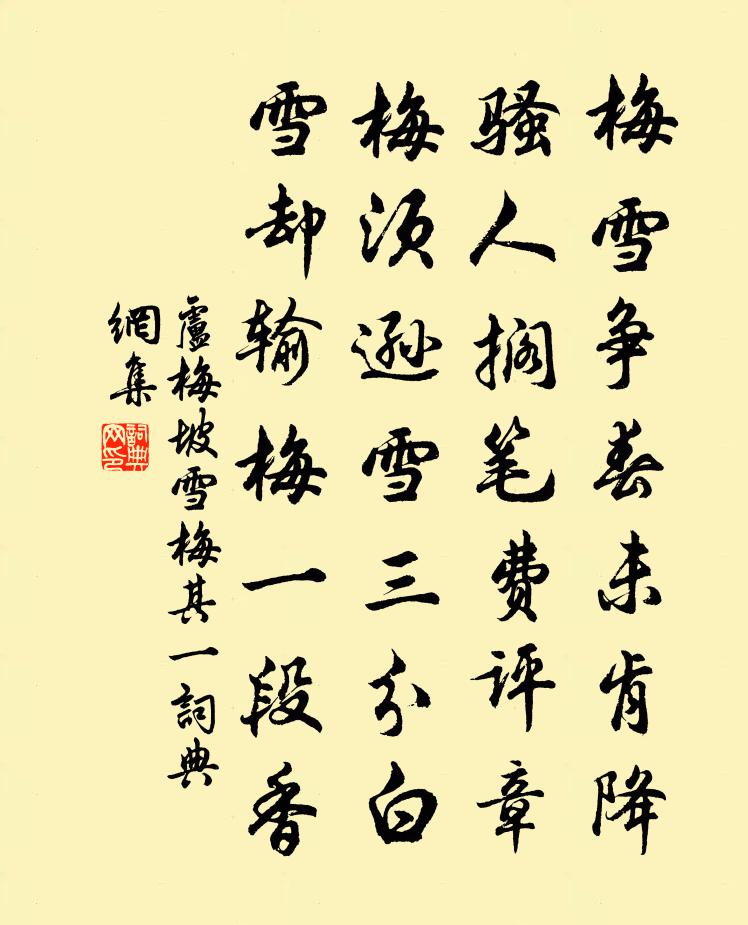 梅雪争春未肯降
骚人搁笔费评章
梅须逊雪三分白
雪却输梅一段香
盧梅坡雪梅其一詞典
網集
詞典网印